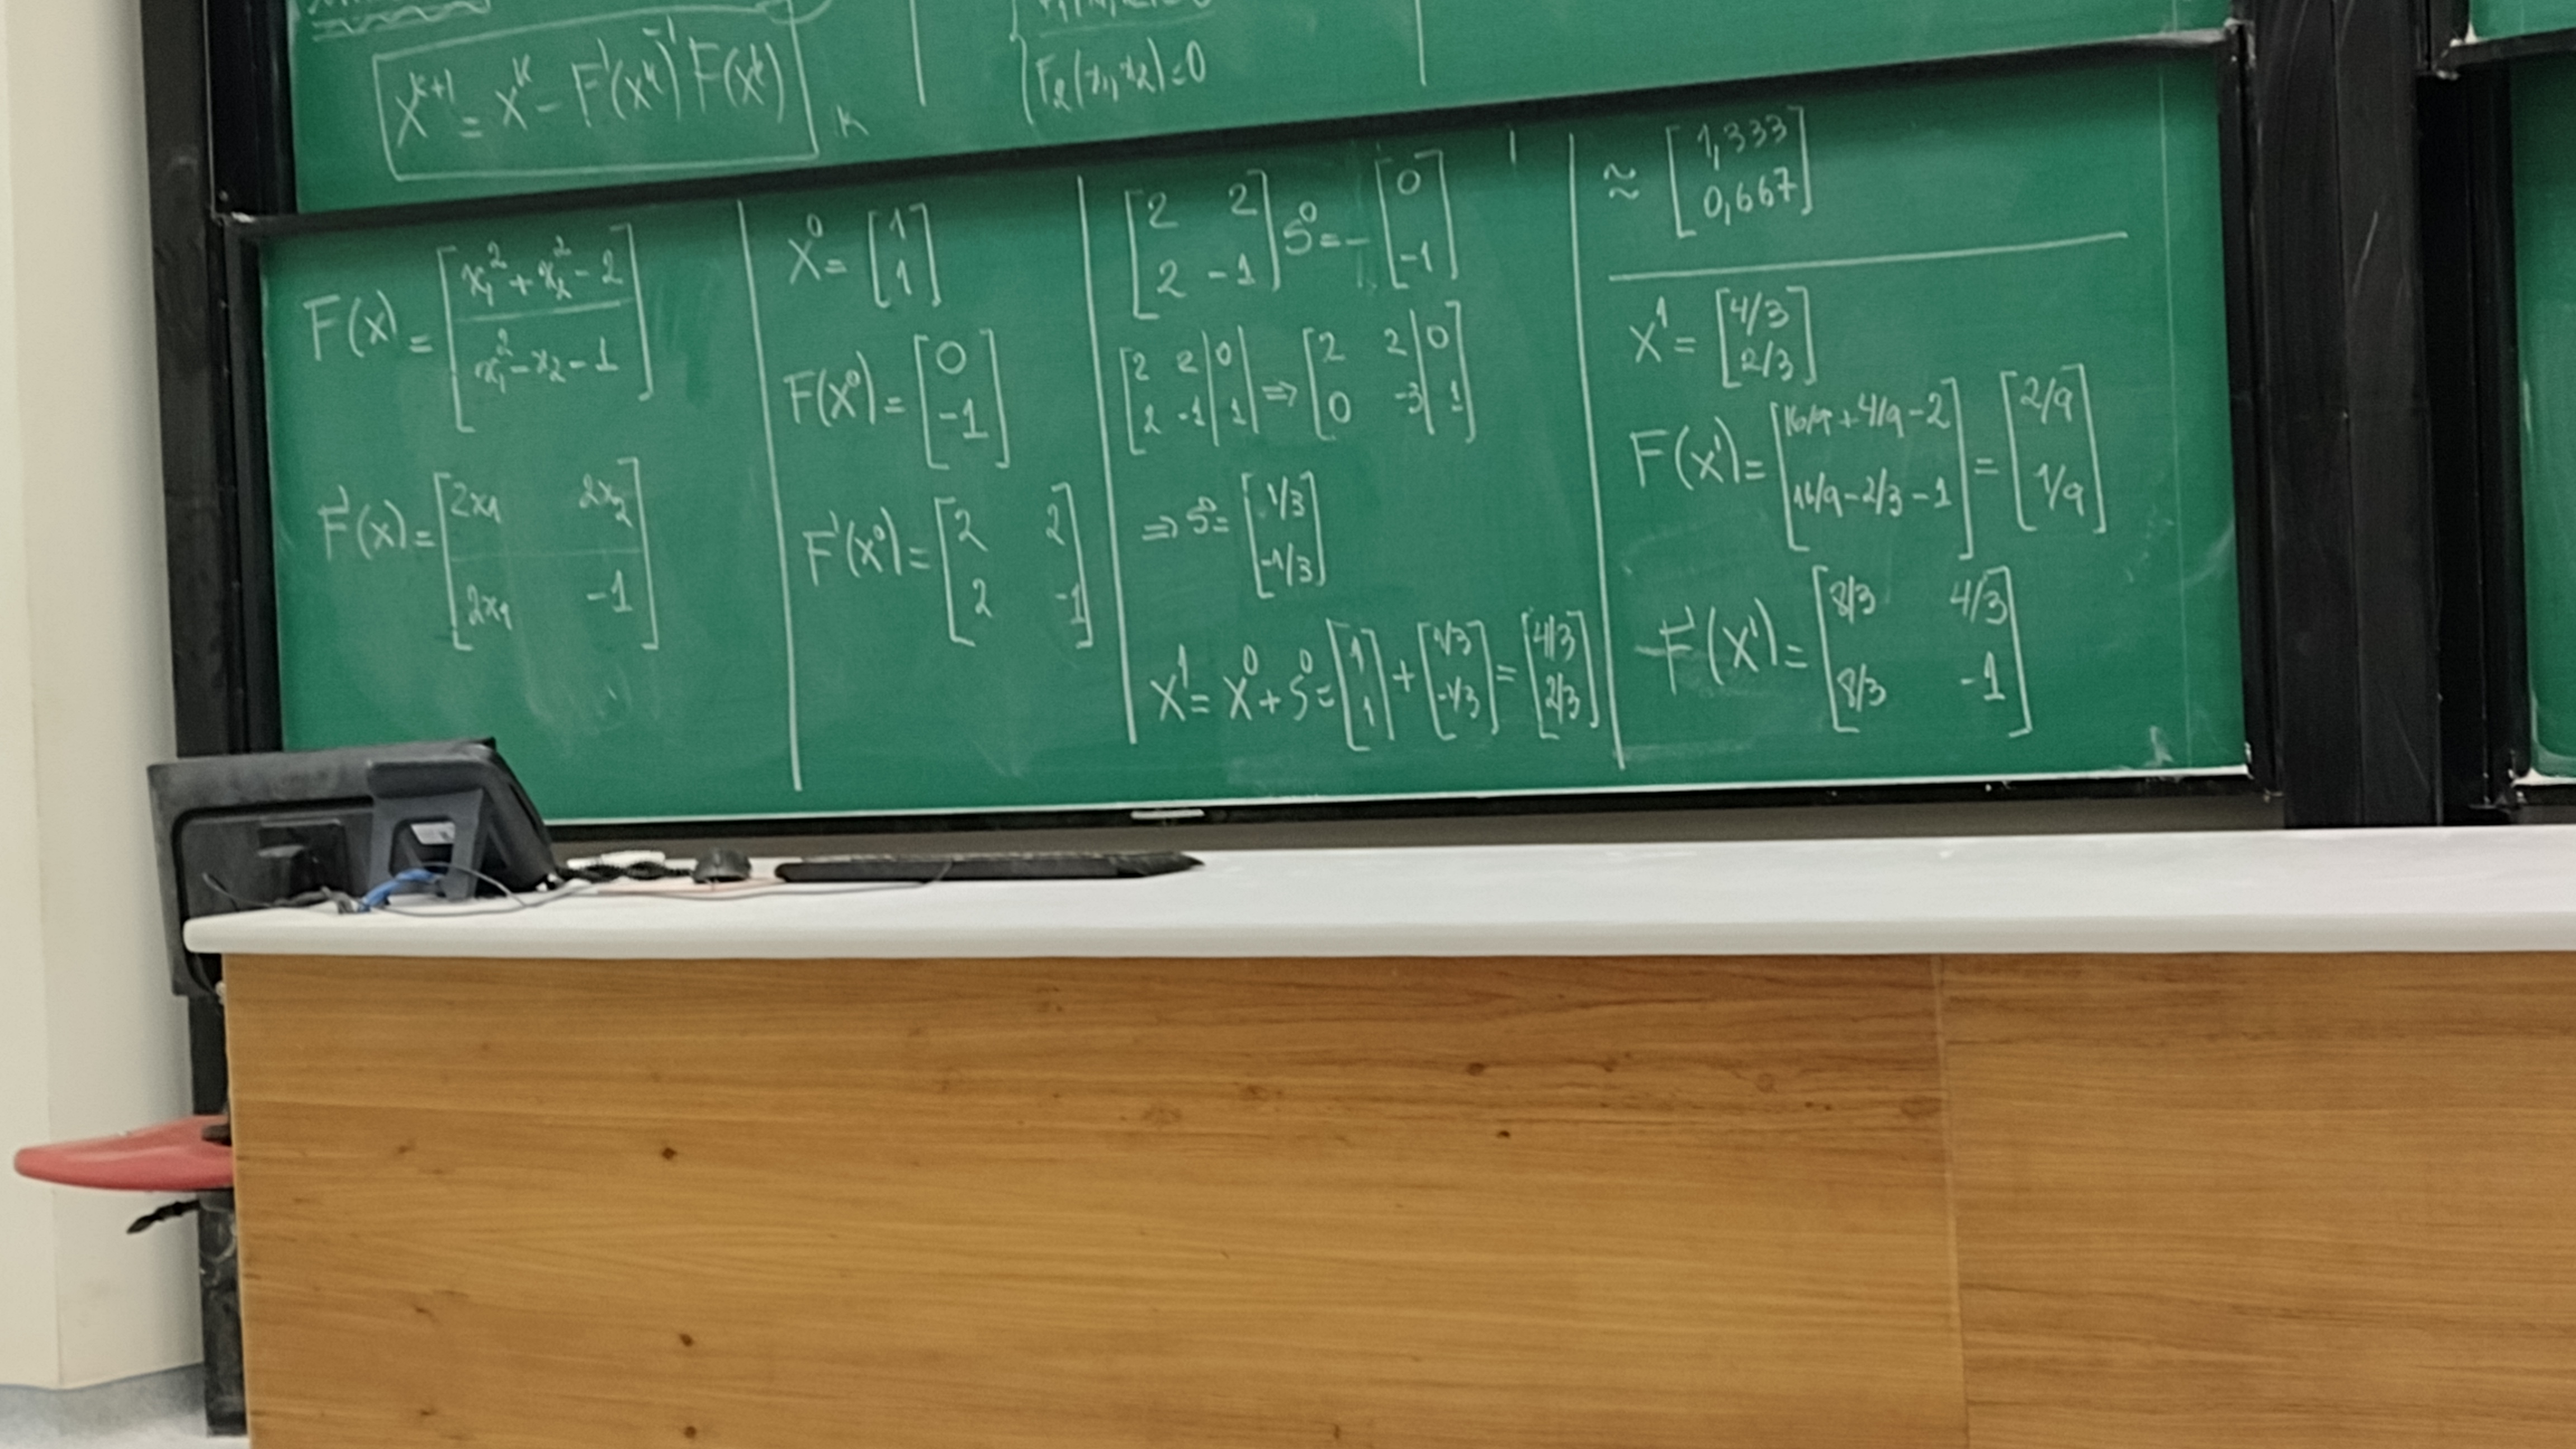 x^{k+1} = x^k - F'(x^k)^{-1} F(x^k)
k
F_2(x_1, x_2) = 0
F(x) = [x_1^2 + x_2^2 - 2
x_1^2 - x_2 - 1]
F'(x) = [2x_1 2x_2
2x_1 -1]
x^0 = [1
1]
F(x^0) = [0
-1]
F'(x^0) = [2 2
2 -1]
[2 2
2 -1] S^0 = - [0
-1]
[2 2 | 0
2 -1 | 1] ⇒ [2 2 | 0
0 -3 | 1]
⇒ S^0 = [1/3
-1/3]
x^1 = x^0 + S^0 = [1
1] + [1/3
-1/3] = [4/3
2/3]
≈ [1,333
0,667]
x^1 = [4/3
2/3]
F(x^1) = [16/9 + 4/9 - 2
16/9 - 2/3 - 1] = [2/9
1/9]
F'(x^1) = [8/3 4/3
8/3 -1]